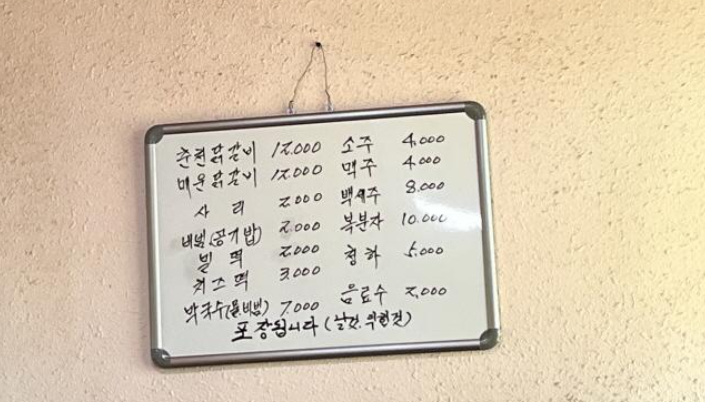 춘천닭갈비 12.000
매운닭갈비 12.000
사리 2.000
비빔(공기밥) 2.000
떡 2.000
치즈떡 3.000
막국수(물.비빔) 7.000
소주 4.000
맥주 4.000
백세주 8.000
복분자 10.000
청하 5.000
음료수 2,000
포장됩니다 (날것.익힌것)